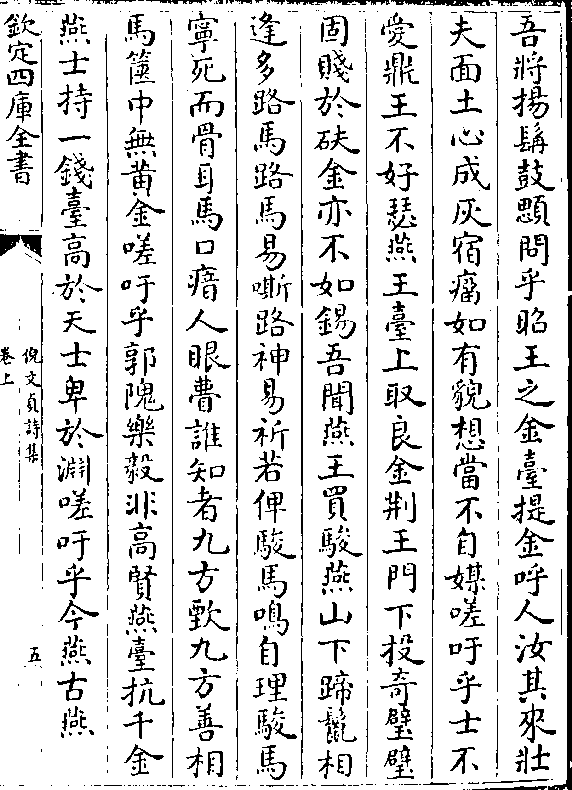 吾將揚鬍鼓顋問乎昭王之金臺提金呼人汝其來壯
夫面土心成灰宿瘤如有貌想當不自媒嗟吁乎士不
愛鼎王不好瑟燕王臺上取良金荆王門下投奇璧璧
固賤於砆金亦不如錫吾聞燕王買駿燕山下蹄鬛相
逢多路馬路馬易嘶路神易祈若俾駿馬鳴自理駿馬
寧死而骨耳馬口瘖人眼瞢誰知者九方歅九方善相
馬篋中無黃金嗟吁乎郭隗樂毅非高賢燕臺抗千金
燕士持一錢臺高於天士卑於淵嗟吁乎今燕古燕
欽定四庫全書
倪文貞詩集
卷上
五